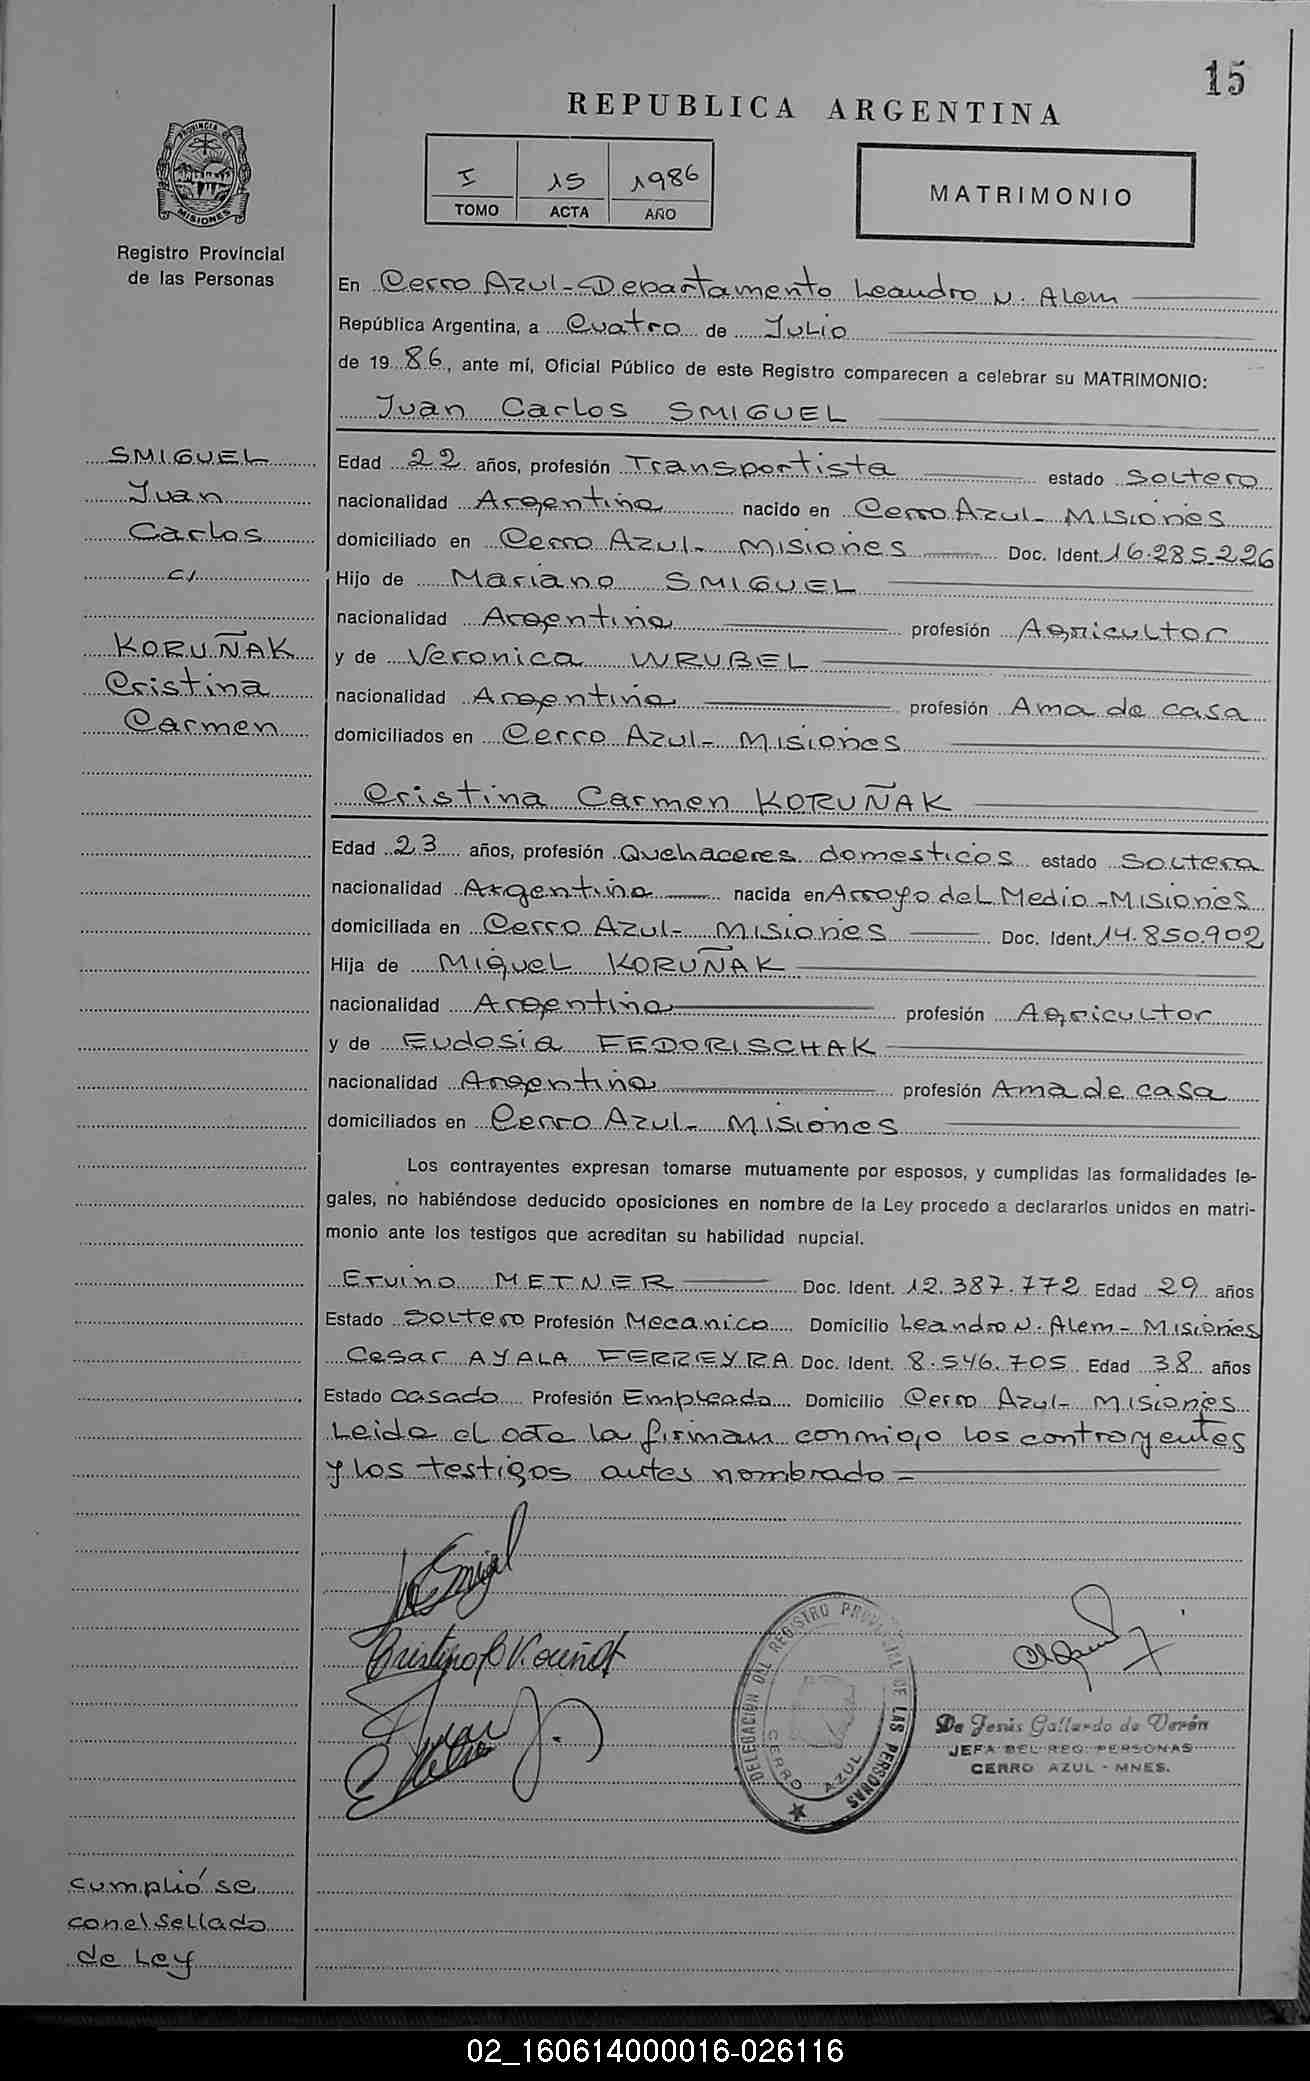 15
REPUBLICA ARGENTINA
PROVINCIA DE
MISIONES
I 15 1986
TOMO ACTA AÑO
MATRIMONIO
Registro Provincial
de las Personas
En Cerro Azul - Departamento Leandro N. Alem
República Argentina, a Cuatro de Julio
de 1986, ante mí, Oficial Público de este Registro comparecen a celebrar su MATRIMONIO:
Juan Carlos SMIGUEL
SMIGUEL
Juan
Carlos
c/
KORUÑAK
Cristina
Carmen
Edad 22 años, profesión Transportista estado Soltero
nacionalidad Argentina nacido en Cerro Azul - Misiones
domiciliado en Cerro Azul - Misiones Doc. Ident. 16.285.226
Hijo de Mariano SMIGUEL
nacionalidad Argentina profesión Agricultor
y de Veronica WRUBEL
nacionalidad Argentina profesión Ama de casa
domiciliados en Cerro Azul - Misiones
Cristina Carmen KORUÑAK
Edad 23 años, profesión Quehaceres domesticos estado Soltera
nacionalidad Argentina nacida en Arroyo del Medio - Misiones
domiciliada en Cerro Azul - Misiones Doc. Ident. 14.850.902
Hija de Miguel KORUÑAK
nacionalidad Argentina profesión Agricultor
y de Eudosia FEDORISCHAK
nacionalidad Argentina profesión Ama de casa
domiciliados en Cerro Azul - Misiones
Los contrayentes expresan tomarse mutuamente por esposos, y cumplidas las formalidades le-
gales, no habiéndose deducido oposiciones en nombre de la Ley procedo a declararlos unidos en matri-
monio ante los testigos que acreditan su habilidad nupcial.
Ervino METNER Doc. Ident. 12.387.772 Edad 29 años
Estado Soltero Profesión Mecanico Domicilio Leandro N. Alem - Misiones
Cesar AYALA FERREYRA Doc. Ident. 8.546.705 Edad 38 años
Estado casado Profesión Empleado Domicilio Cerro Azul - Misiones
Leida el acta la firman conmigo los contrayentes
y los testigos antes nombrado -
DELEGACIÓN DEL REGISTRO PROVINCIAL DE LAS PERSONAS
CERRO AZUL
De Jesús Gallardo de Verón
JEFA DEL REG. PERSONAS
CERRO AZUL - MNES.
cumplió se
con el sellado
de Ley
02_160614000016-026116